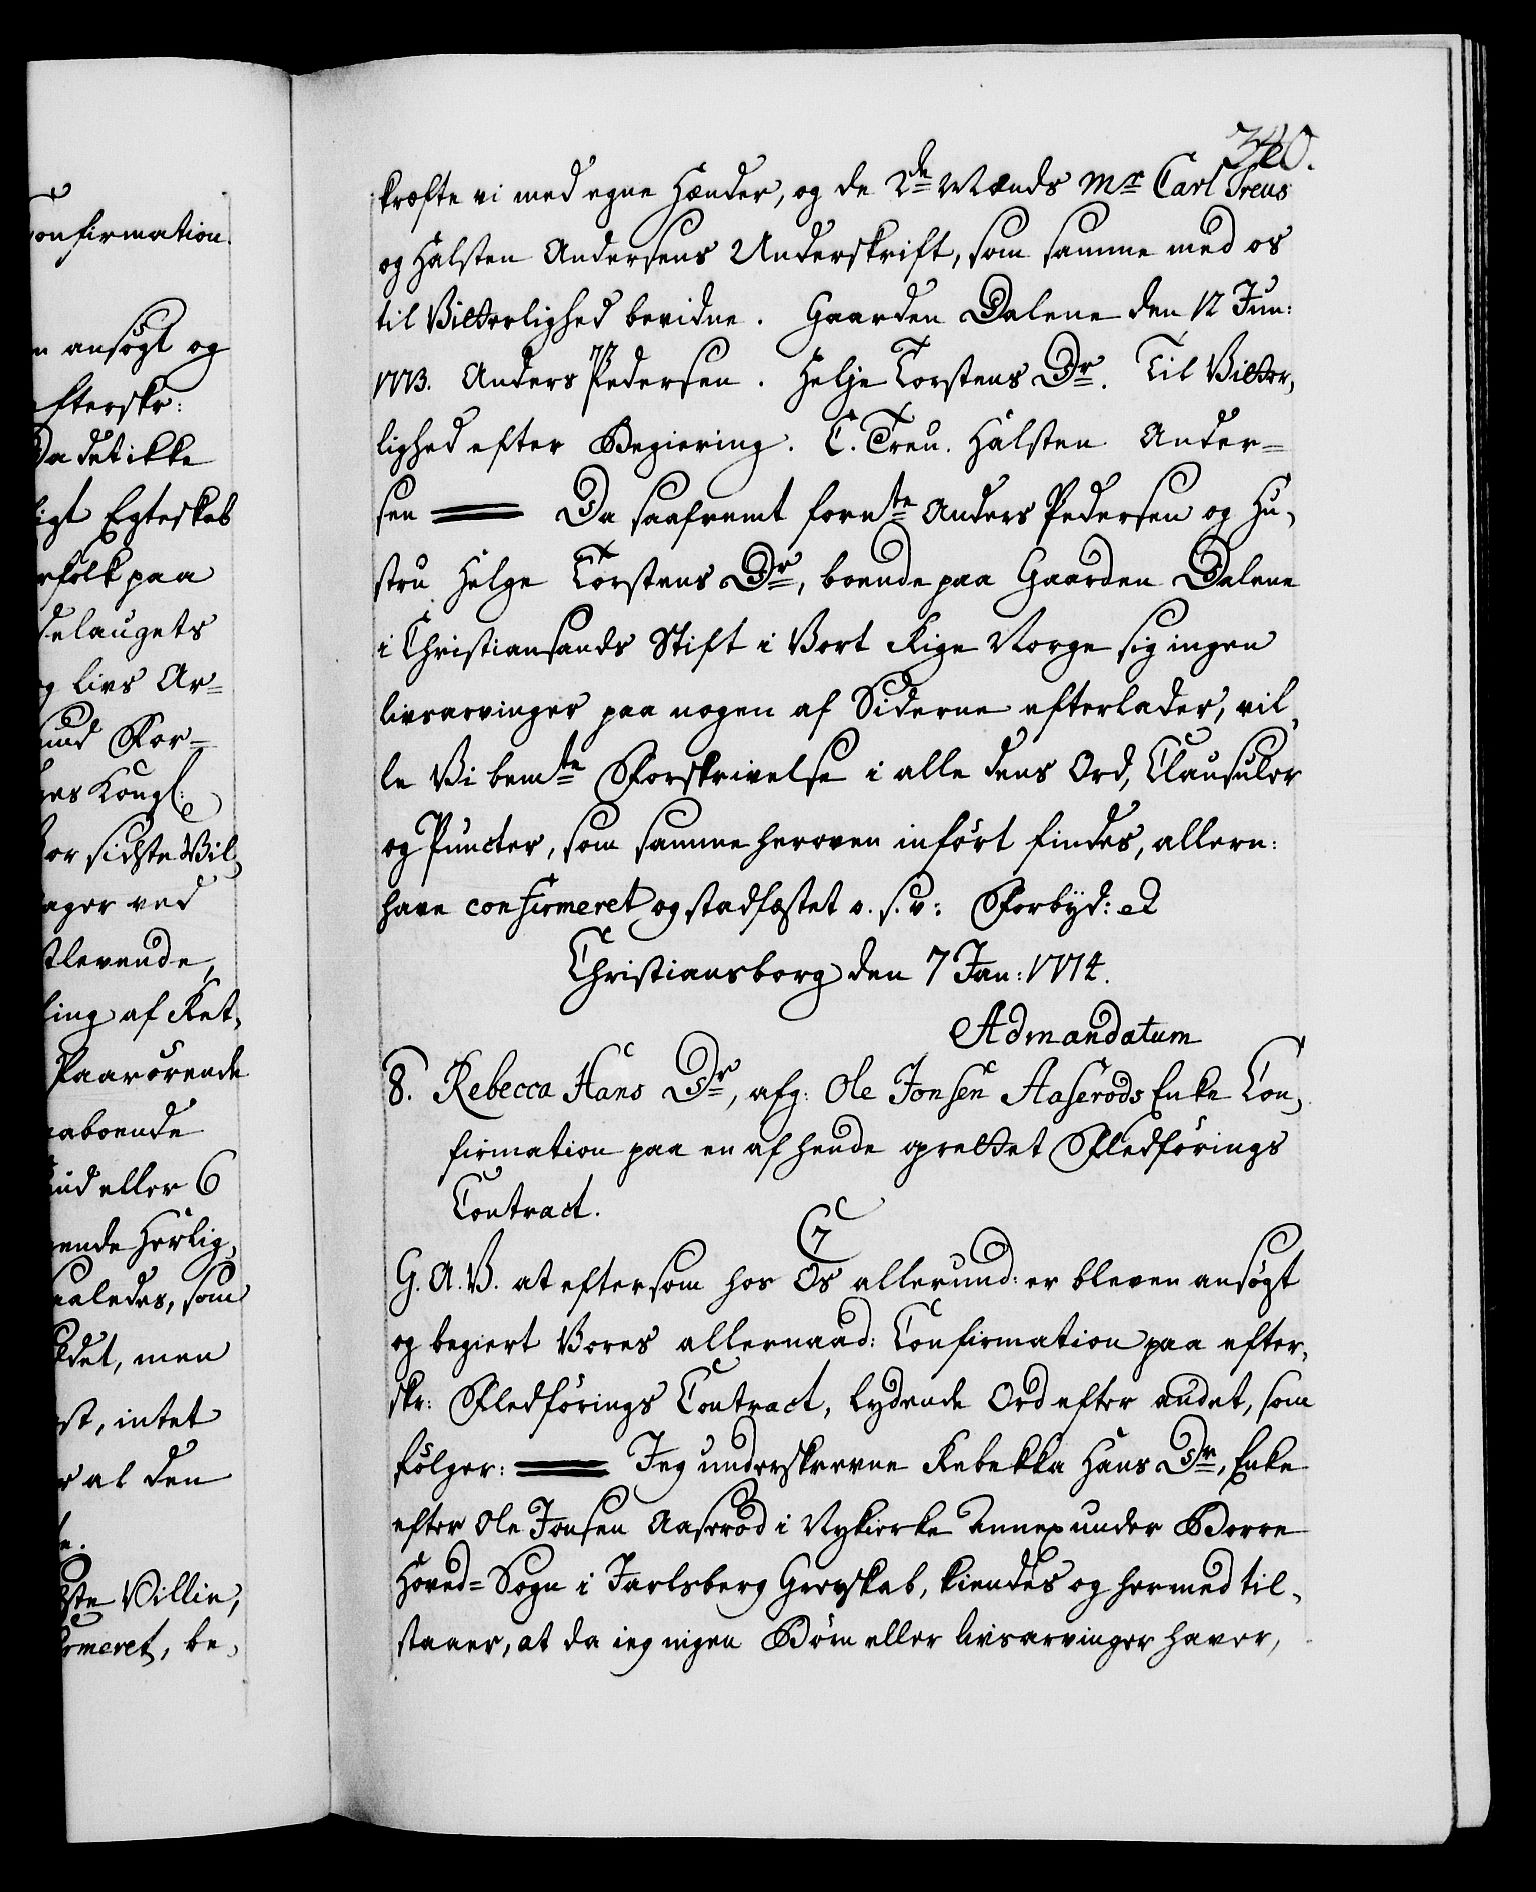 onfirmation.
n ansøgt og
efterskr:
Da det ikke
ligt Egteskab
erfolk paa
delaugets
og livs Ar=
und For=
hes Kongl:
for sidste Vil,
ager ved
tlevende,
ling af Ret,
Paarørende
aboende
ind eller 6
ende Herlig,
aaledes, som
ldet, men
st, intet
r al den
e.
dste Villie,
irmeret, be,
340.
kræfte vi med egne Hænder, og de 2de Mænds Mr Carl Treus
og Halsten Andersens Underskrift, som samme med os
til Vitterlighed bevidne. Gaarden Dalene den 12 Jun:
1773. Anders Pedersen. Helje Torstens Dr. Til Vitter,
lighed efter Begiering. C. Treu. Halsten Ander=
sen == Da saafremt fornte Anders Pedersen og Hu,
stru Helge Torstens Dr, boende paa Gaarden Dalene
i Christiansands Stift i Vort Rige Norge sig ingen
livsarvinger paa nogen af Siderne efterlader, vil,
le Vi bemte Forskrivelse i alle dens Ord, Clausuler
og Puncter, som samme heroven inført findes, allern:
have confirmeret og stadfæstet o. s. v: Forbyd: et
Christiansborg den 7 Jan: 1774.
Admandatum
8. Rebecca Hans Dr, afg: Ole Jonsen Aaserods Enke Con,
firmation paa en af hende oprettet Fledførings
Contract.
C7
G. A. V. at eftersom hos Os allerund: er bleven ansøgt
og begiert Vores allernaad: Confirmation paa efter,
skr: Fledførings Contract, lydende Ord efter andet, som
følger: == Jeg underskrevne Rebekka Hans Dr, Enke
efter Ole Jonsen Aaserød i Nykierke Annex under Borre
Hoved=Sogn i Jarlsberg Grevskab, kiendes og hermed til,
staaer, at da ieg ingen Børn eller livsarvinger haver,